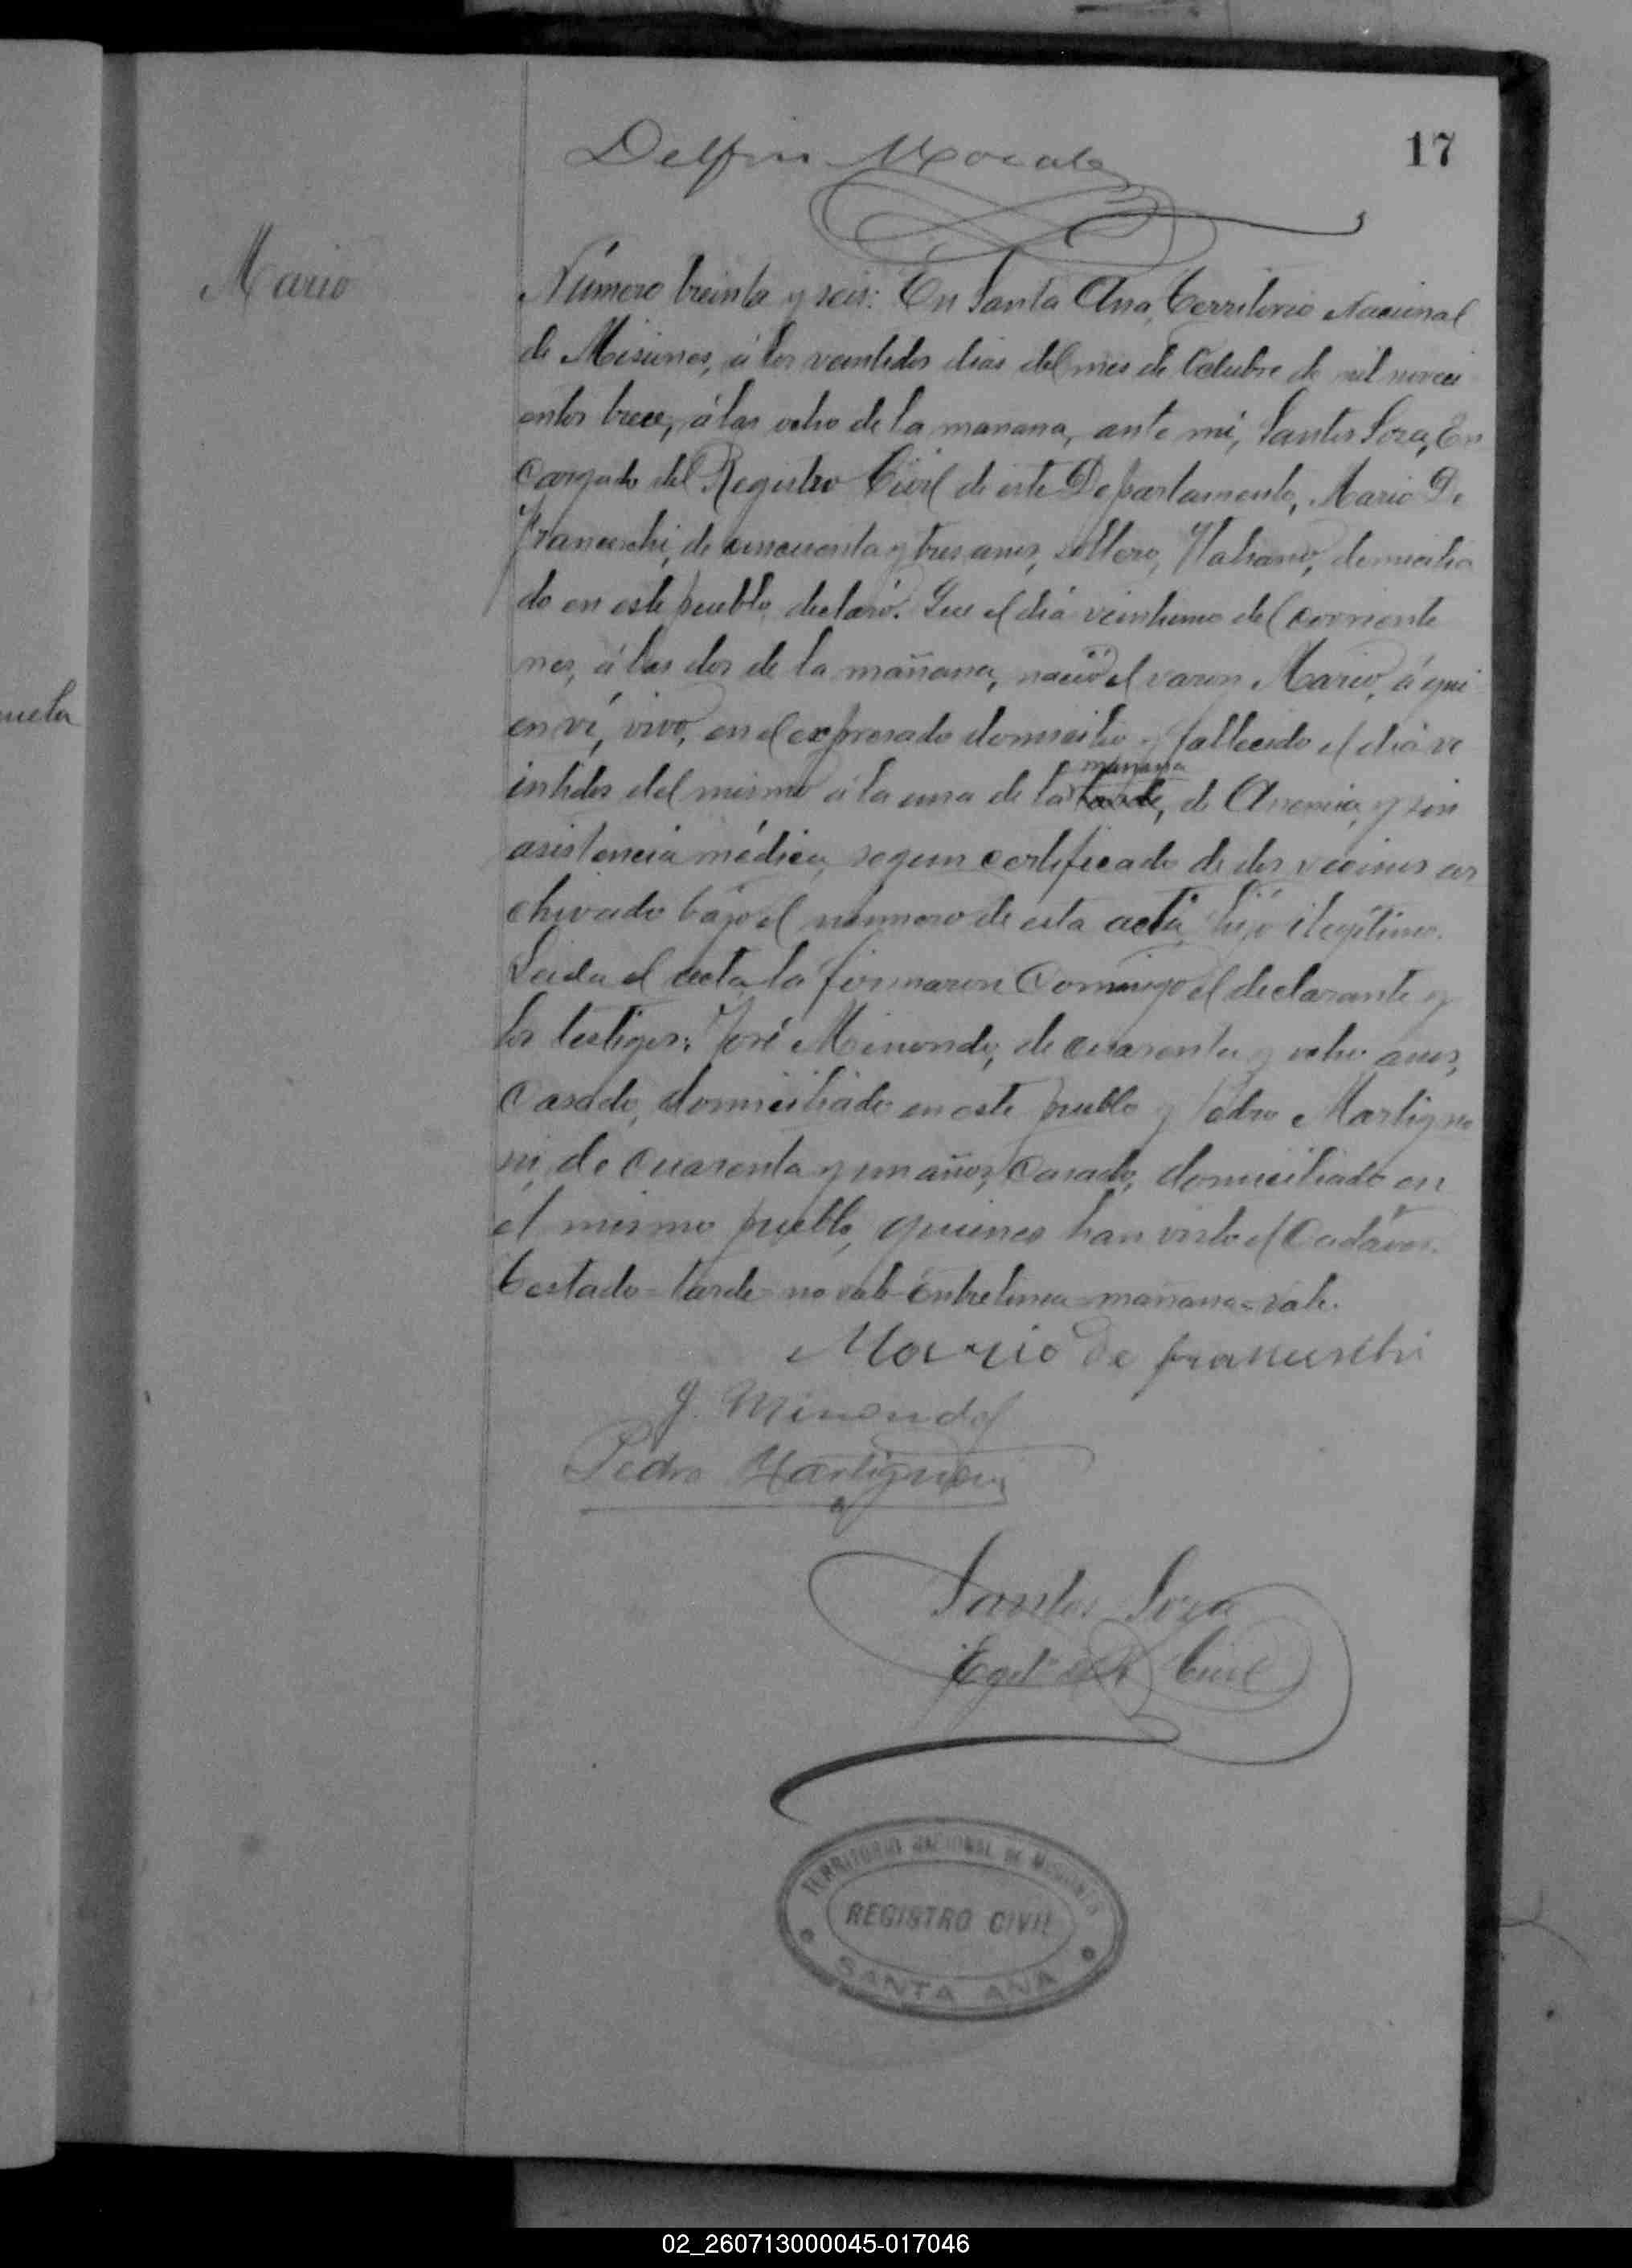 17
Delfin Morales
Mario
Número treinta y seis: En Santa Ana, Territorio Nacional
de Misiones, á los veintidos dias del mes de Octubre de mil noveci
entos trece, á las ocho de la manana, ante mi, Santos Soza, En
cargado del Registro Civil de este Departamento, Mario De
Franceschi, de cincuenta y tres anos, soltero, Italiano, domicilia
do en este pueblo, declaró: Que el dia veintiuno del corriente
mes, á las dos de la mañana, nació el varon Mario, á qui
en ví, vivo, en el expresado domicilio y fallecido el dia ve
intidos del mismo á la una de la tarde, de Anemia, y sin
manana
asistencia médica, segun certificado de dos vecinos ar
chivado bajo el numero de esta acta hijo ilegítimo.
Leida el acta la firmaron conmigo el declarante y
los testigos: José Minondo, de cuarenta y ocho anos,
casado, domiciliado en este pueblo y Pedro Martigno
ni, de cuarenta y un años, casado, domiciliado en
el mismo pueblo, quienes han visto el cadáver.
Testado = tarde = no vale Entrelinea = manana = vale.
Mario De franceschi
J. Minondo
Pedro Martignoni
Santos Soza
Egdo del R Civil
TERRITORIO NACIONAL DE MISIONES
REGISTRO CIVIL
SANTA ANA
02_260713000045-017046